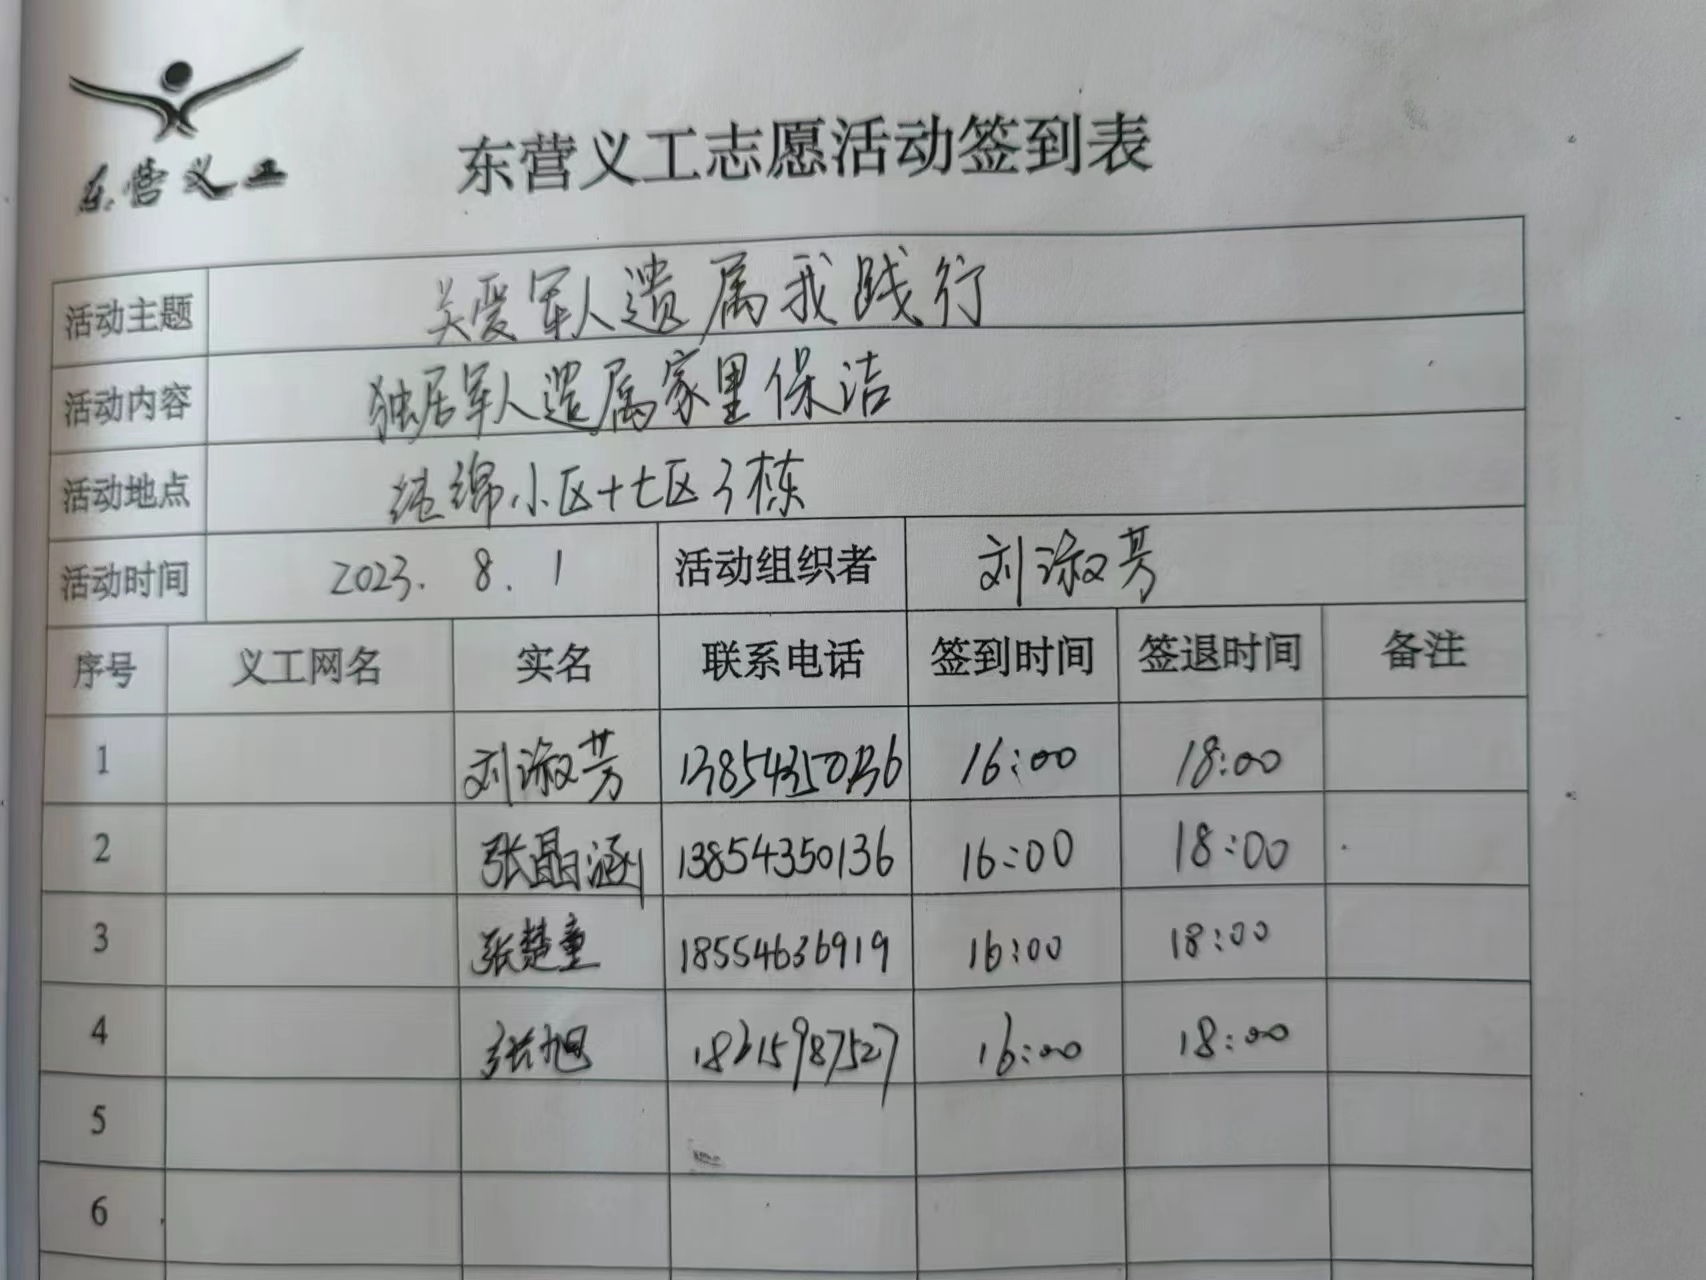 东营义工
东营义工志愿活动签到表
活动主题 关爱军人遗属我践行
活动内容 独居军人遗属家里保洁
活动地点 锦小区十七区3栋
活动时间 2023. 8. 1 活动组织者 刘淑芳
序号 义工网名 实名 联系电话 签到时间 签退时间 备注
1 刘淑芳 13854350136 16:00 18:00
2 张晶涵 13854350136 16:00 18:00
3 张楚童 18554636919 16:00 18:00
4 张旭 18615987527 16:00 18:00
5
6